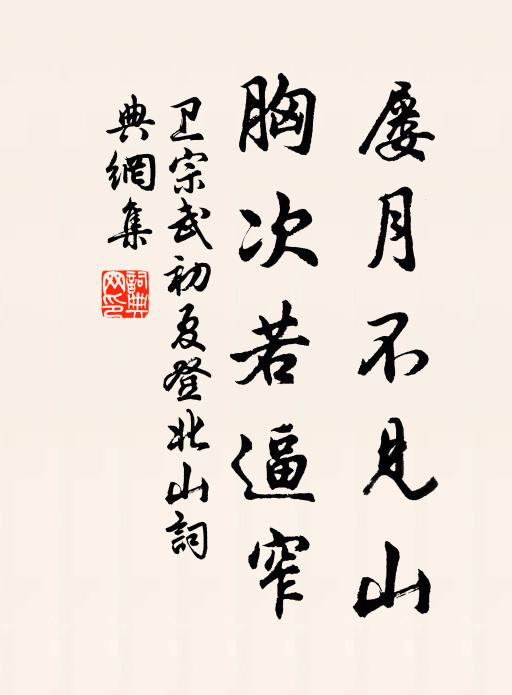 屡月不见山
胸次若逼窄
卫宗武初夏登北山詞
典網集
詞典网印